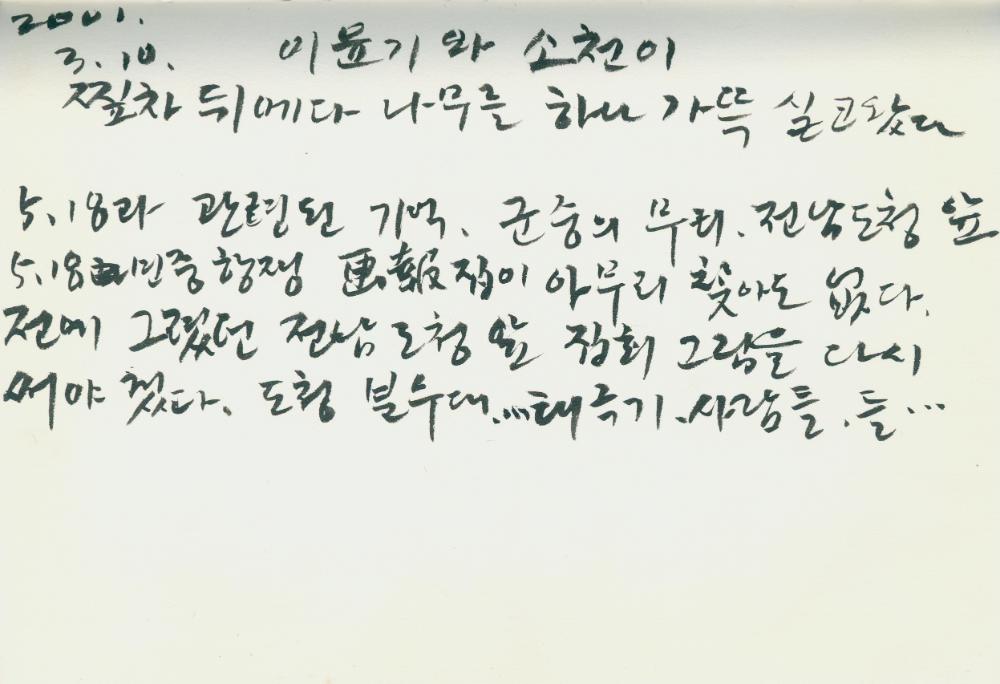 2001.
3.10. 이윤기와 소천이
찦차 뒤에다 나무를 하나 가뜩 실고왔다
5.18과 관련된 기억. 군중의 무리. 전남도청 앞
5.18 민중항쟁 画報집이 아무리 찾아도 없다.
전에 그렸던 전남도청앞 집회 그림을 다시
떠야 쳤다. 도청 분수대..... 태극기. 사람들. 들...